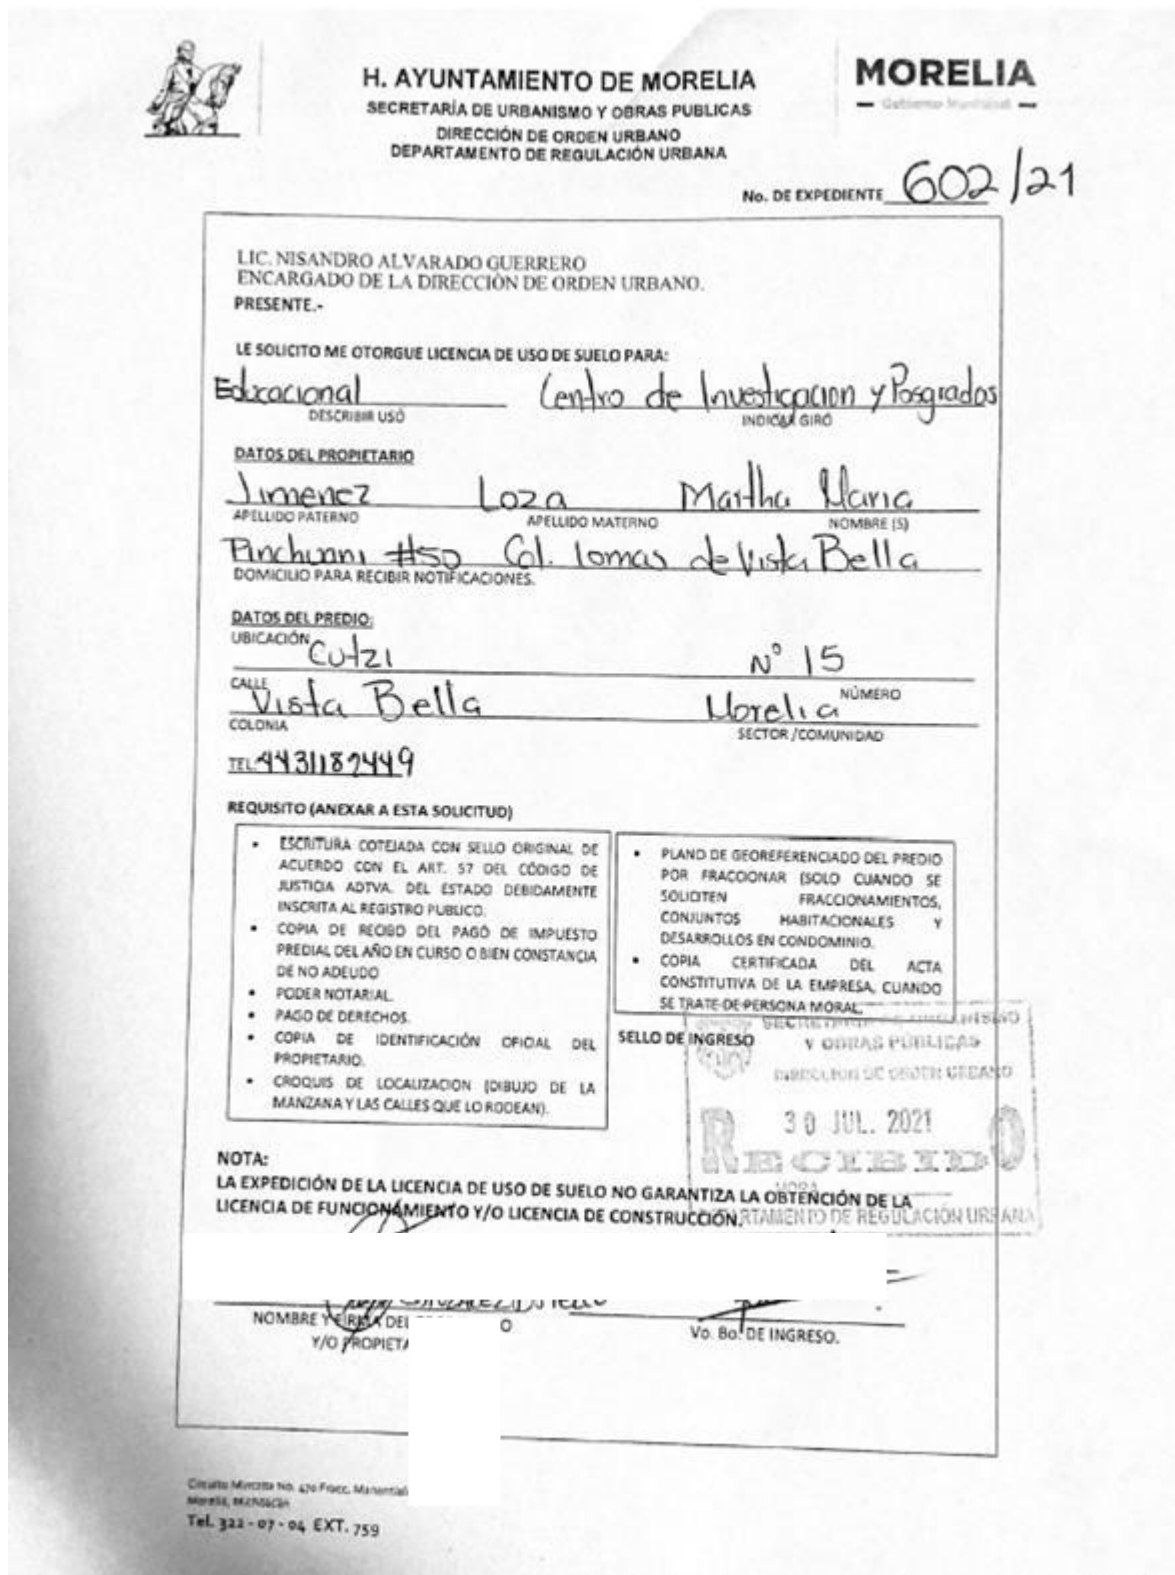 H. AYUNTAMIENTO DE MORELIA
SECRETARÍA DE URBANISMO Y OBRAS PUBLICAS
DIRECCIÓN DE ORDEN URBANO
DEPARTAMENTO DE REGULACIÓN URBANA
MORELIA
Gobierno Municipal
No. DE EXPEDIENTE 602/21
LIC. NISANDRO ALVARADO GUERRERO
ENCARGADO DE LA DIRECCIÓN DE ORDEN URBANO.
PRESENTE.-
LE SOLICITO ME OTORGUE LICENCIA DE USO DE SUELO PARA:
Educacional Centro de Investigacion y Posgrados
DESCRIBIR USO INDICAR GIRO
DATOS DEL PROPIETARIO
Jimenez Loza Martha Maria
APELLIDO PATERNO APELLIDO MATERNO NOMBRE (S)
#50 Col. lomas de Vista Bella
DOMICILIO PARA RECIBIR NOTIFICACIONES.
DATOS DEL PREDIO:
UBICACIÓN
Cutzi N° 15
CALLE NÚMERO
Vista Bella Morelia
COLONIA SECTOR /COMUNIDAD
TEL. 4431182449
REQUISITO (ANEXAR A ESTA SOLICITUD)
• ESCRITURA COTEJADA CON SELLO ORIGINAL DE
ACUERDO CON EL ART. 57 DEL CÓDIGO DE
JUSTICIA ADTVA. DEL ESTADO DEBIDAMENTE
INSCRITA AL REGISTRO PUBLICO.
• COPIA DE RECIBO DEL PAGO DE IMPUESTO
PREDIAL DEL AÑO EN CURSO O BIEN CONSTANCIA
DE NO ADEUDO
• PODER NOTARIAL.
• PAGO DE DERECHOS.
• COPIA DE IDENTIFICACIÓN OFICIAL DEL
PROPIETARIO.
• CROQUIS DE LOCALIZACION (DIBUJO DE LA
MANZANA Y LAS CALLES QUE LO RODEAN).
• PLANO DE GEOREFERENCIADO DEL PREDIO
POR FRACCIONAR (SOLO CUANDO SE
SOLICITEN FRACCIONAMIENTOS,
CONJUNTOS HABITACIONALES Y
DESARROLLOS EN CONDOMINIO.
• COPIA CERTIFICADA DEL ACTA
CONSTITUTIVA DE LA EMPRESA, CUANDO
SE TRATE DE PERSONA MORAL.
SELLO DE INGRESO
SECRETARIA DE URBANISMO
Y OBRAS PÚBLICAS
DIRECCION DE ORDEN URBANO
30 JUL. 2021
RECIBIDO
HORA
DEPARTAMENTO DE REGULACIÓN URBANA
NOTA:
LA EXPEDICIÓN DE LA LICENCIA DE USO DE SUELO NO GARANTIZA LA OBTENCIÓN DE LA
LICENCIA DE FUNCIONAMIENTO Y/O LICENCIA DE CONSTRUCCIÓN.
NOMBRE Y FIRMA DEL
Y/O PROPIETA
Vo. Bo. DE INGRESO.
Morelia, Michoacán
Tel. 322 - 07 - 04 EXT. 759